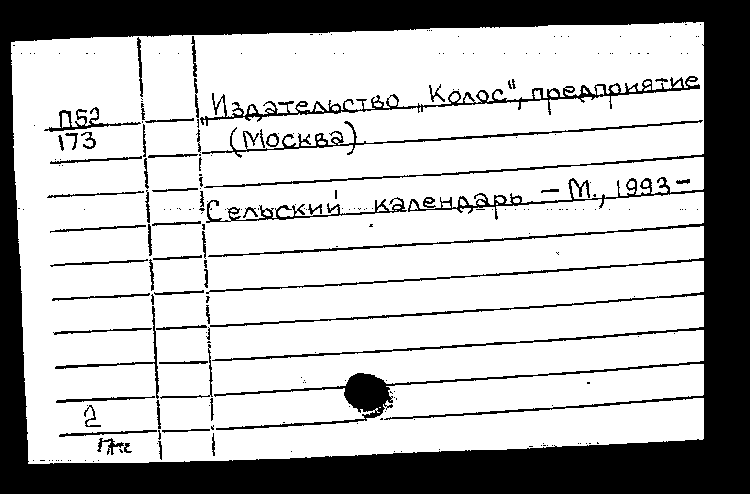 П52
173
„Издательство „Колос“, предприятие
(Москва)
Сельский календарь – М., 1993–
2